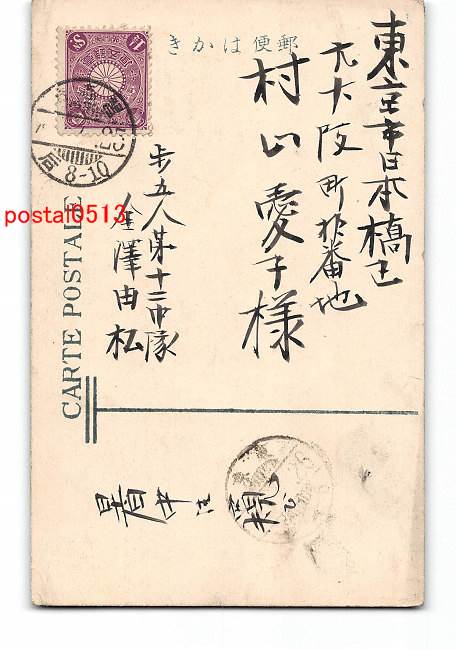 郵便はかき
東京市日本橋区
元大阪町拾番地
村山愛子様
歩五八第十二中隊
金澤由松
CARTE POSTALE
暑中
8-10
postal0513